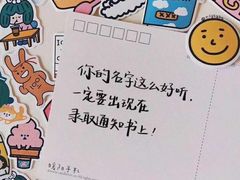 你的名字这么好听，
一定要出现在
录取通知书上！